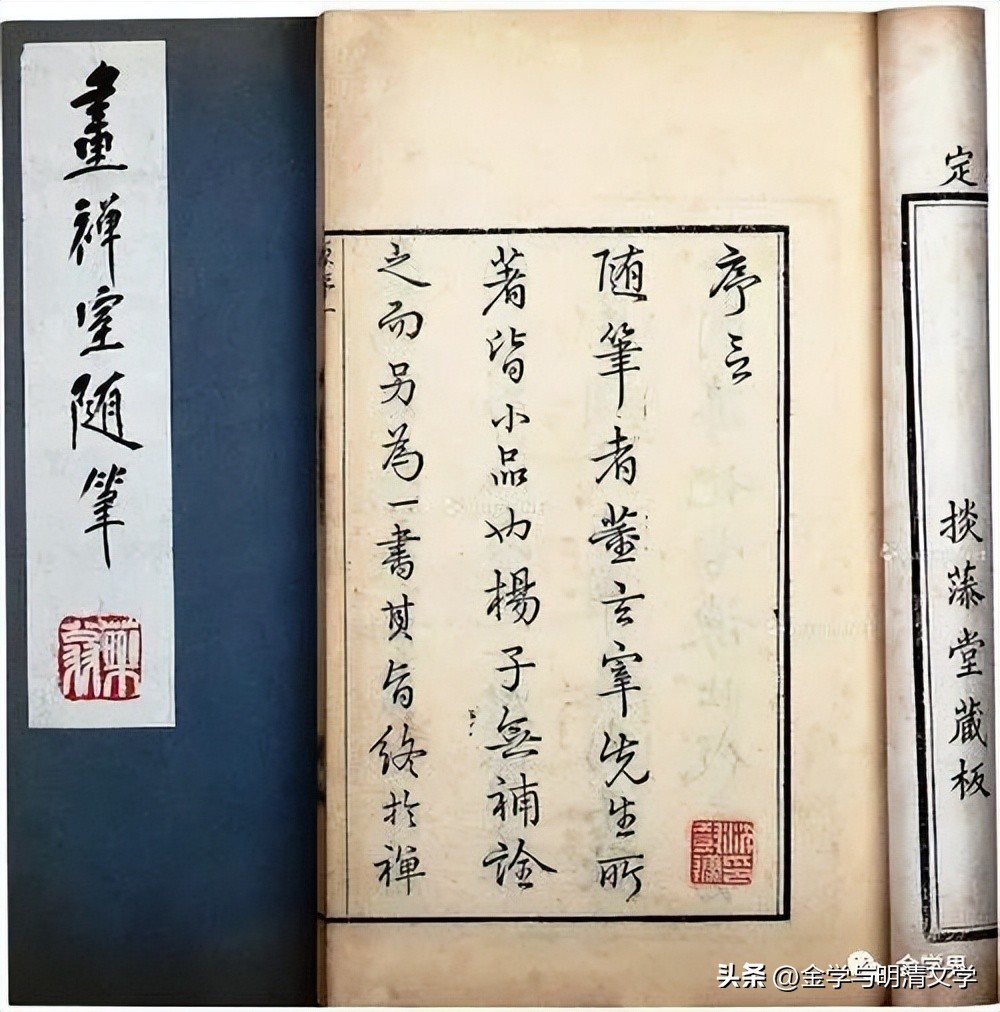 畫禪室隨筆
序言
随筆者董玄宰先生所
著皆小品也楊子無補詮
之而另為一書其旨終於禪
定
掞藻堂藏板
头条 @金学与明清文学
金学界